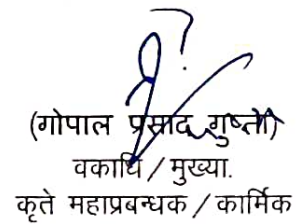 (गोपाल प्रसाद गुप्ता)
वकाधि / मुख्या.
कृते महाप्रबन्धक / कार्मिक